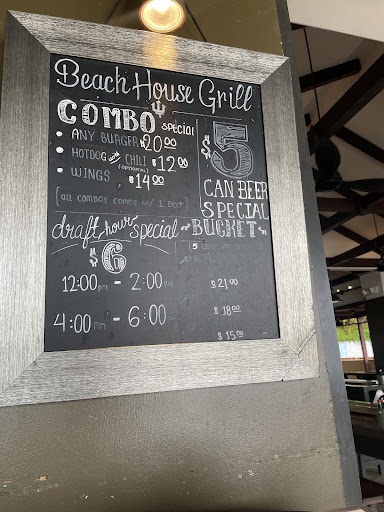 Beach House Grill
COMBO special
• ANY BURGER $20.00
• HOTDOG CHILI $12.00
(OPTIONAL)
• WINGS $14.00
[all combos comes w/ 1 beer]
$5
CAN BEER
SPECIAL
draft hour special
$6
12:00pm - 2:00pm
4:00pm - 6:00pm
BUCKET
$21.00
$18.00
$15.00